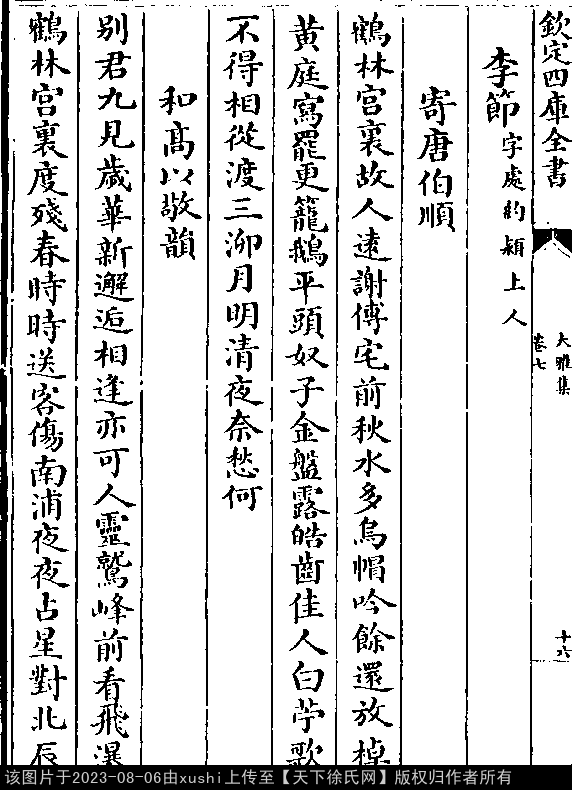 欽定四庫全書
大雅集
卷七
十六
李節字處約潁上人
寄唐伯順
鶴林宫裏故人逺謝傅宅前秋水多烏帽吟餘還放棹
黄庭寫罷更籠鵝平頭奴子金盤露皓齒佳人白苧歌
不得相從渡三泖月明清夜奈愁何
和髙以敬韻
别君九見歳華新邂逅相逢亦可人靈鷲峰前看飛瀑
鶴林宫裏度殘春時時送客傷南浦夜夜占星對北辰
该图片于2023-08-06由xushi上传至【天下徐氏网】版权归作者所有